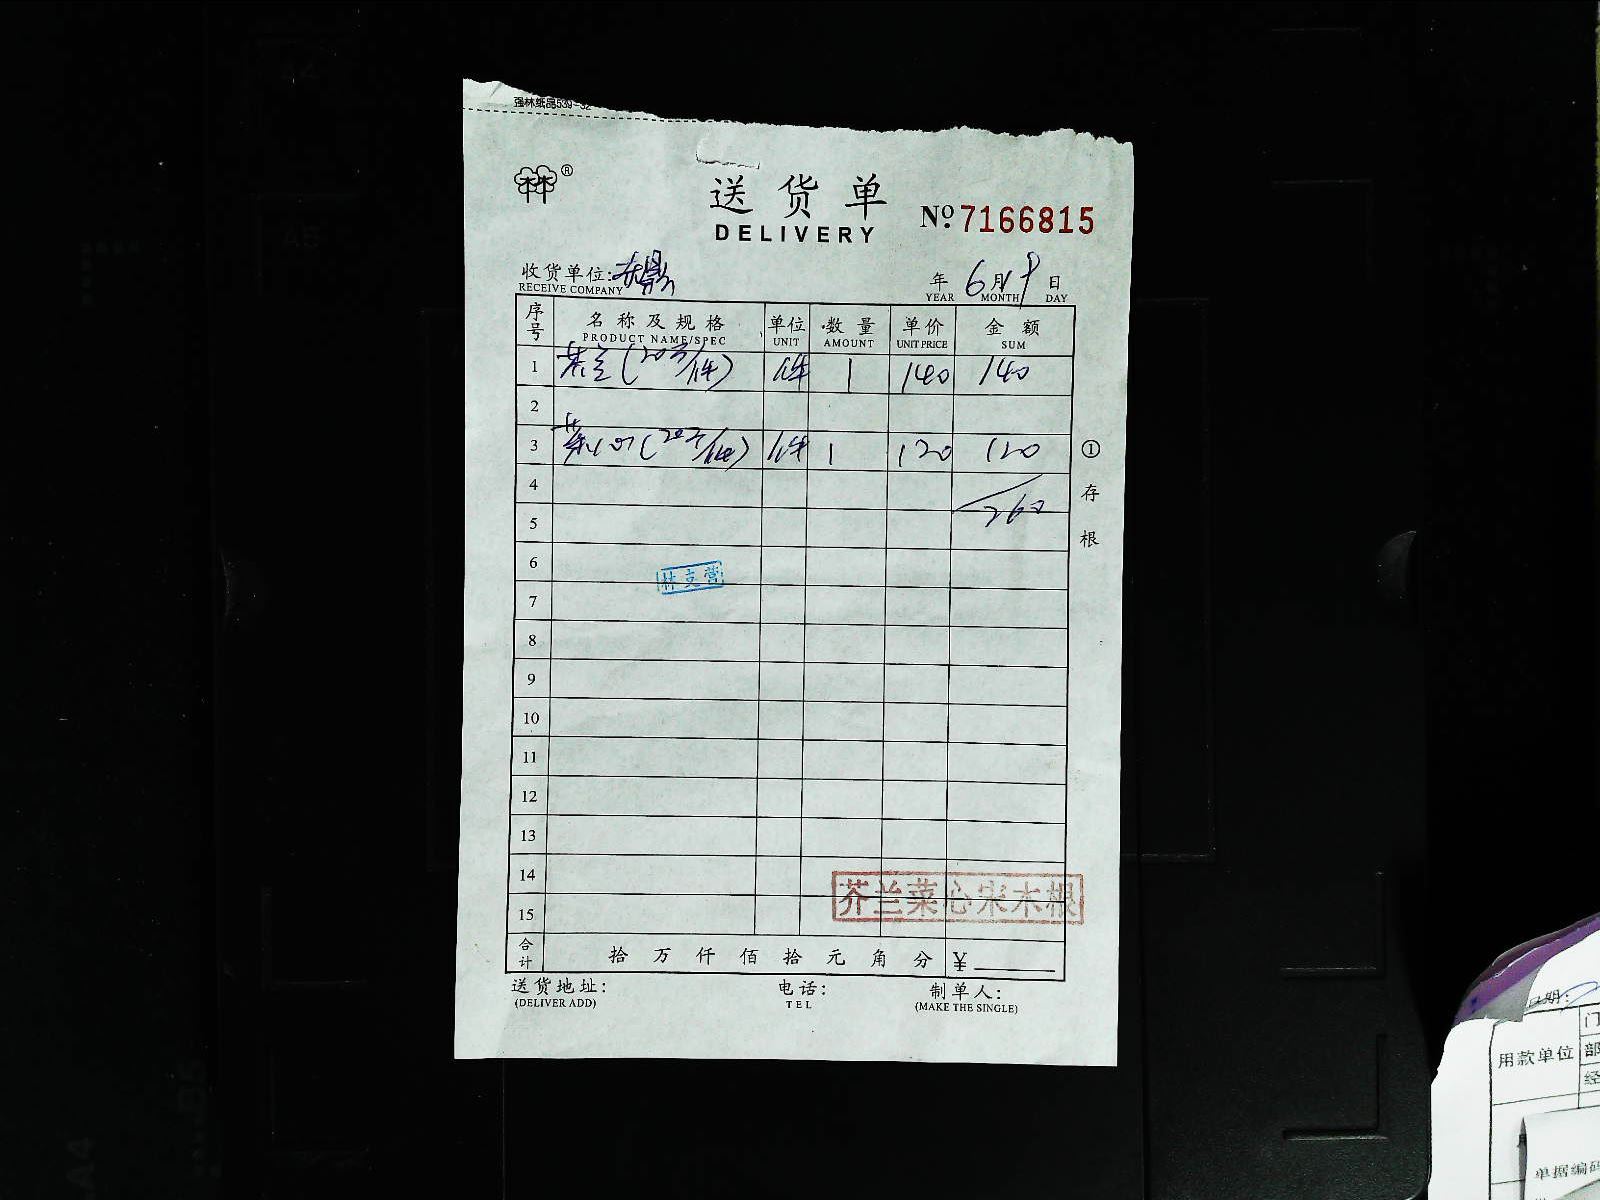 强林纸品539-32
林®
送货单
DELIVERY
№ 7166815
收货单位:
RECEIVE COMPANY
年 6月 9日
YEAR MONTH DAY
序号 名称及规格 单位 数量 单价 金额
PRODUCT NAME/SPEC UNIT AMOUNT UNIT PRICE SUM
1 芥兰(20斤/件) 件 1 140 140
2
3 菜心(20斤/件) 件 1 120 120
4
260
5
6
林克营
7
8
9
10
11
12
13
14
芥兰菜心宋木根
15
合计 拾 万 仟 佰 拾 元 角 分 ¥
送货地址: 电话: 制单人:
(DELIVER ADD) TEL (MAKE THE SINGLE)
①存根
日期:
用款单位
门
部
经
单据编码